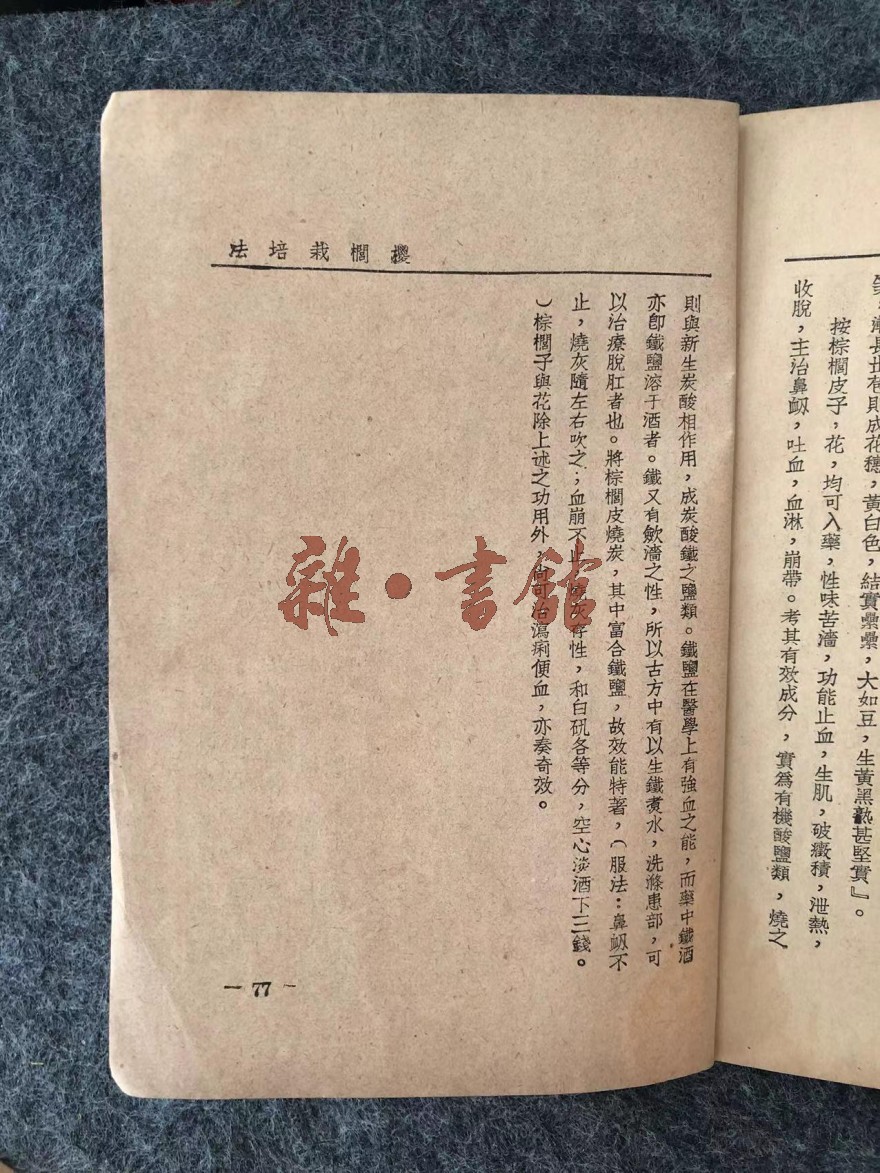 笋，漸長出苞則成花穗，黃白色，結實纍纍，大如豆，生黃黑熟甚堅實』。
按棕櫚皮子，花，均可入藥，性味苦濇，功能止血，生肌，破癥積，泄熱，
收脫，主治鼻衂，吐血，血淋，崩帶。考其有效成分，實爲有機酸鹽類，燒之
櫚栽培法
則與新生炭酸相作用，成炭酸鐵之鹽類。鐵鹽在醫學上有強血之能，而藥中鐵酒
亦卽鐵鹽溶于酒者。鐵又有歛濇之性，所以古方中有以生鐵煑水，洗滌患部，可
以治療脫肛者也。將棕櫚皮燒炭，其中富合鐵鹽，故效能特著，（服法：鼻衂不
止，燒灰隨左右吹之；血崩不止，燒灰存性，和白矾各等分，空心淡酒下三錢。
）棕櫚子與花除上述之功用外，尚可治瀉痢便血，亦奏奇效。
— 77 —
雜·書館